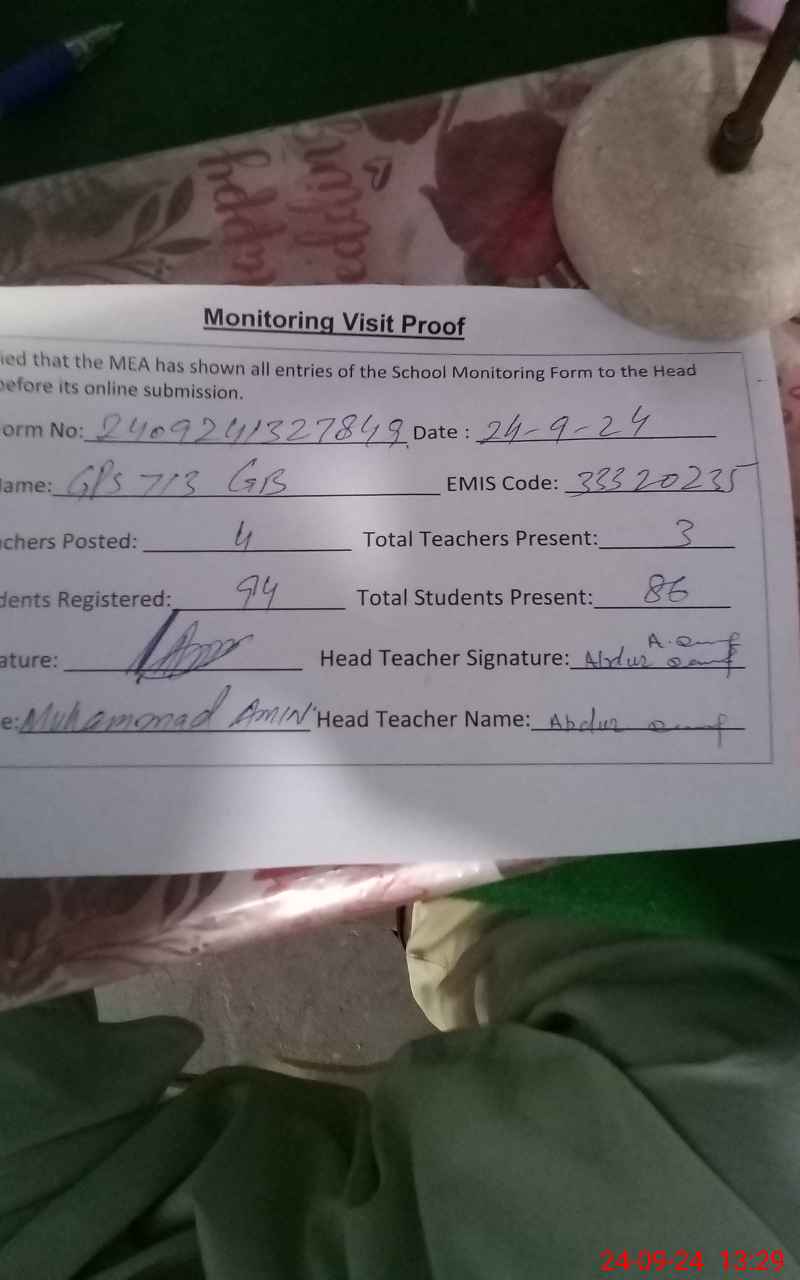 Happy
Wedding
Monitoring Visit Proof
ied that the MEA has shown all entries of the School Monitoring Form to the Head
before its online submission.
orm No: 2409241327849 Date : 24-9-24
Name: GPS 713 GB EMIS Code: 33320235
chers Posted: 4 Total Teachers Present: 3
dents Registered: 94 Total Students Present: 86
ature: Head Teacher Signature: Abdur
e: Muhammad AMIN Head Teacher Name: Abdur
24-09-24 13:29